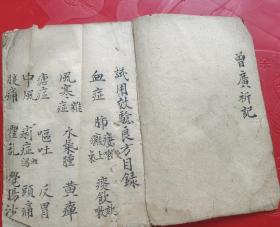 曾廣祈記
試用效驗良方目錄
血症 肺癰 痰飲
風寒雜症 水臌腫 黃疸
瘧症 嘔吐 反胃
中風 痢症 頭痛
腹痛 霍亂